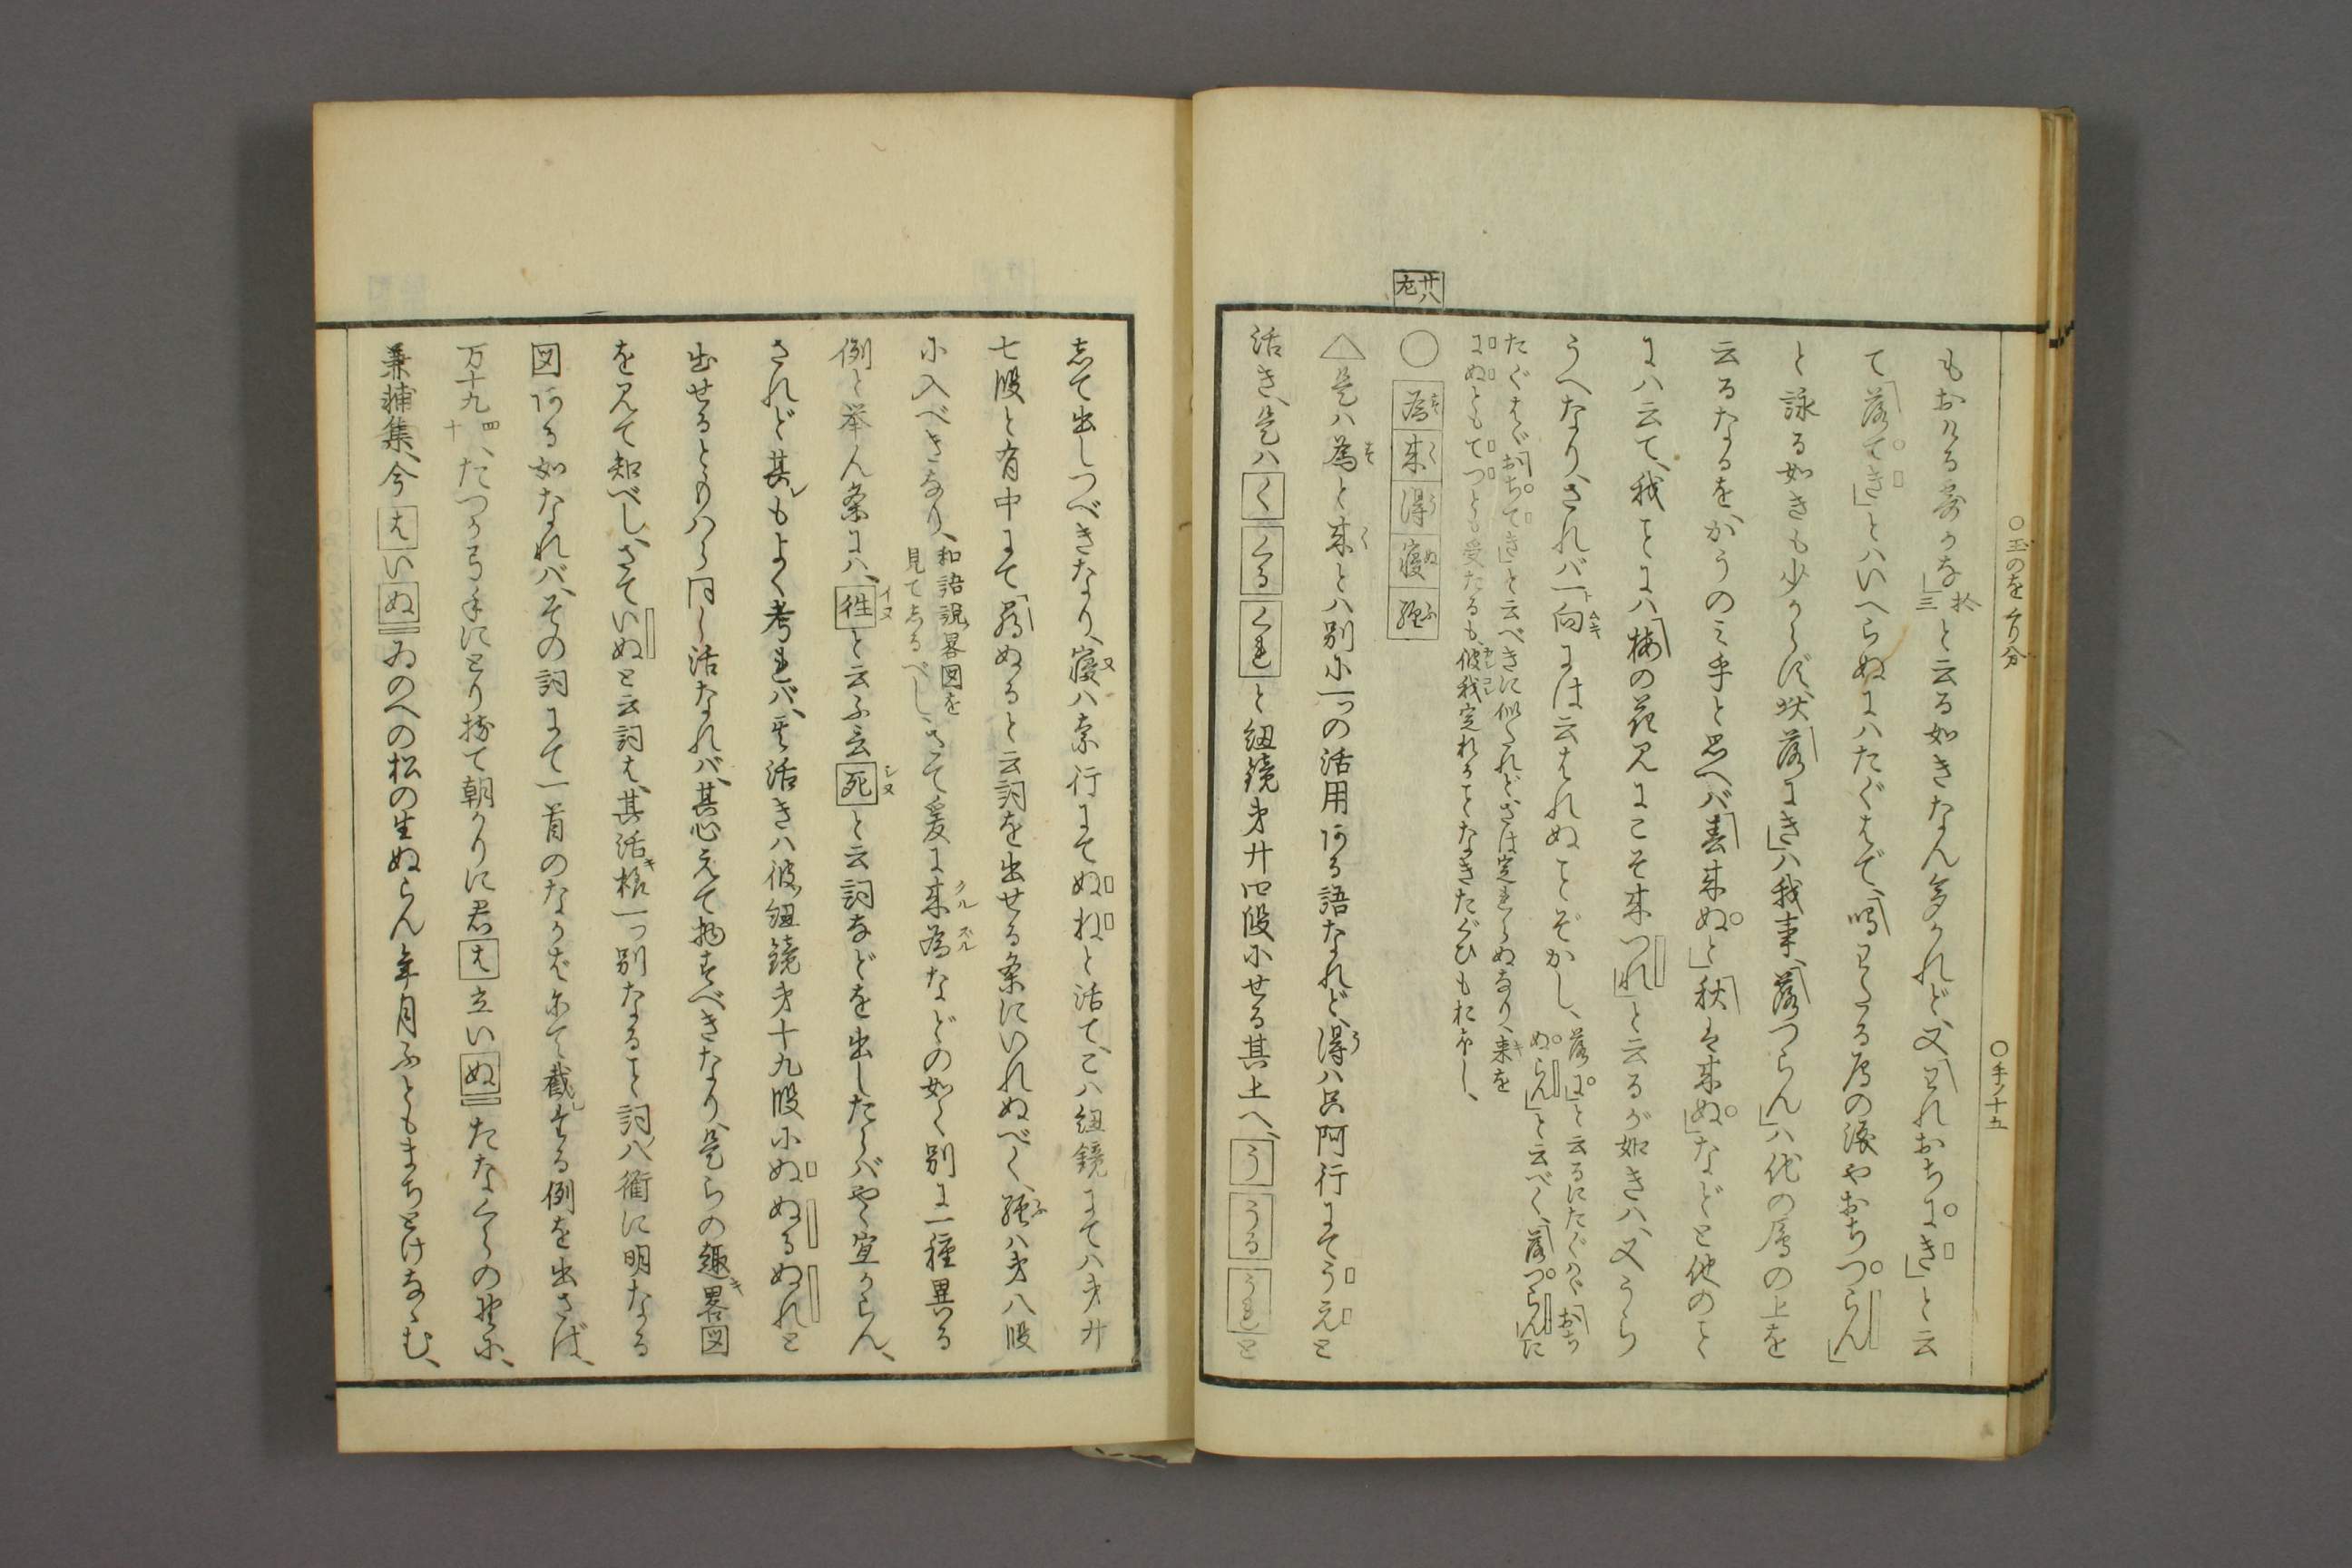 ○玉のをくり分
○手ノ十五
もおける露かな」三 と云る如きなん多かれど、又「われおちにき」と云
て「落てき」とハいへらぬにハたぐはで、「鳴わたる雁の涙やおちつらん」
と詠る如きも少からず、状「落にき」ハ我事、「落つらん」ハ他の雁の上を
云るなるを、かうのミ手と思へバ「春来ぬと」「秋は来ぬ」などと他のこと
にハ云て、我ことにハ「梅の花見にこそ来つれ」と云るが如きハ、又うら
うへなり、されバ一向にハ云はれぬことぞかし、
落に」と云るにたぐハゞ「おちぬらん」と云べく、「落つらん」に
たぐはゞ「おちてき」と云べきに似たれどさは定まらぬなり、来を
にぬとも てつとも受たるも、彼我定れることなきたぐひもおほし、
廿八左
○ 為 来 得 寝 経
△是ハ為と来とハ別に一つの活用ある語なれど、得ハ只阿行にてうえと
活き、是ハくくるくれと紐鏡第廿四段にせる其上へ、ううるうれと
して出しつべきなり、寝ハ奈行にてぬねと活て、こハ紐鏡にてハ第廿
七段と有中にて「尋ぬると云詞を出せる条にいれぬべく、経ハ第八段
に入べきなり、和語説畧図を見てしるべし さて爰に来為などの如く別に一種異る
例と挙ん条にハ、往と云ふ言死と云詞などを出したらバやゝ宜からん、
されど其もよく考れバ、其活きハ彼紐鏡第十九段にぬぬるぬれと
出せるとハらハら同し活なれバ、其心えて物すべきなり、是らの趣畧図
を見て知べし、さていぬと云詞は、其活格一つ別なること詞八衢に明なる
図ある如なれバ、その詞にて一首のなかばにて截する例を出さば、
万十九四十、たつか弓手にとり持て朝かりに君は立いぬたなくらの野に、
兼輔集、今はいぬゐのへの松の生ぬらん年月ふともまちとけなゝむ、